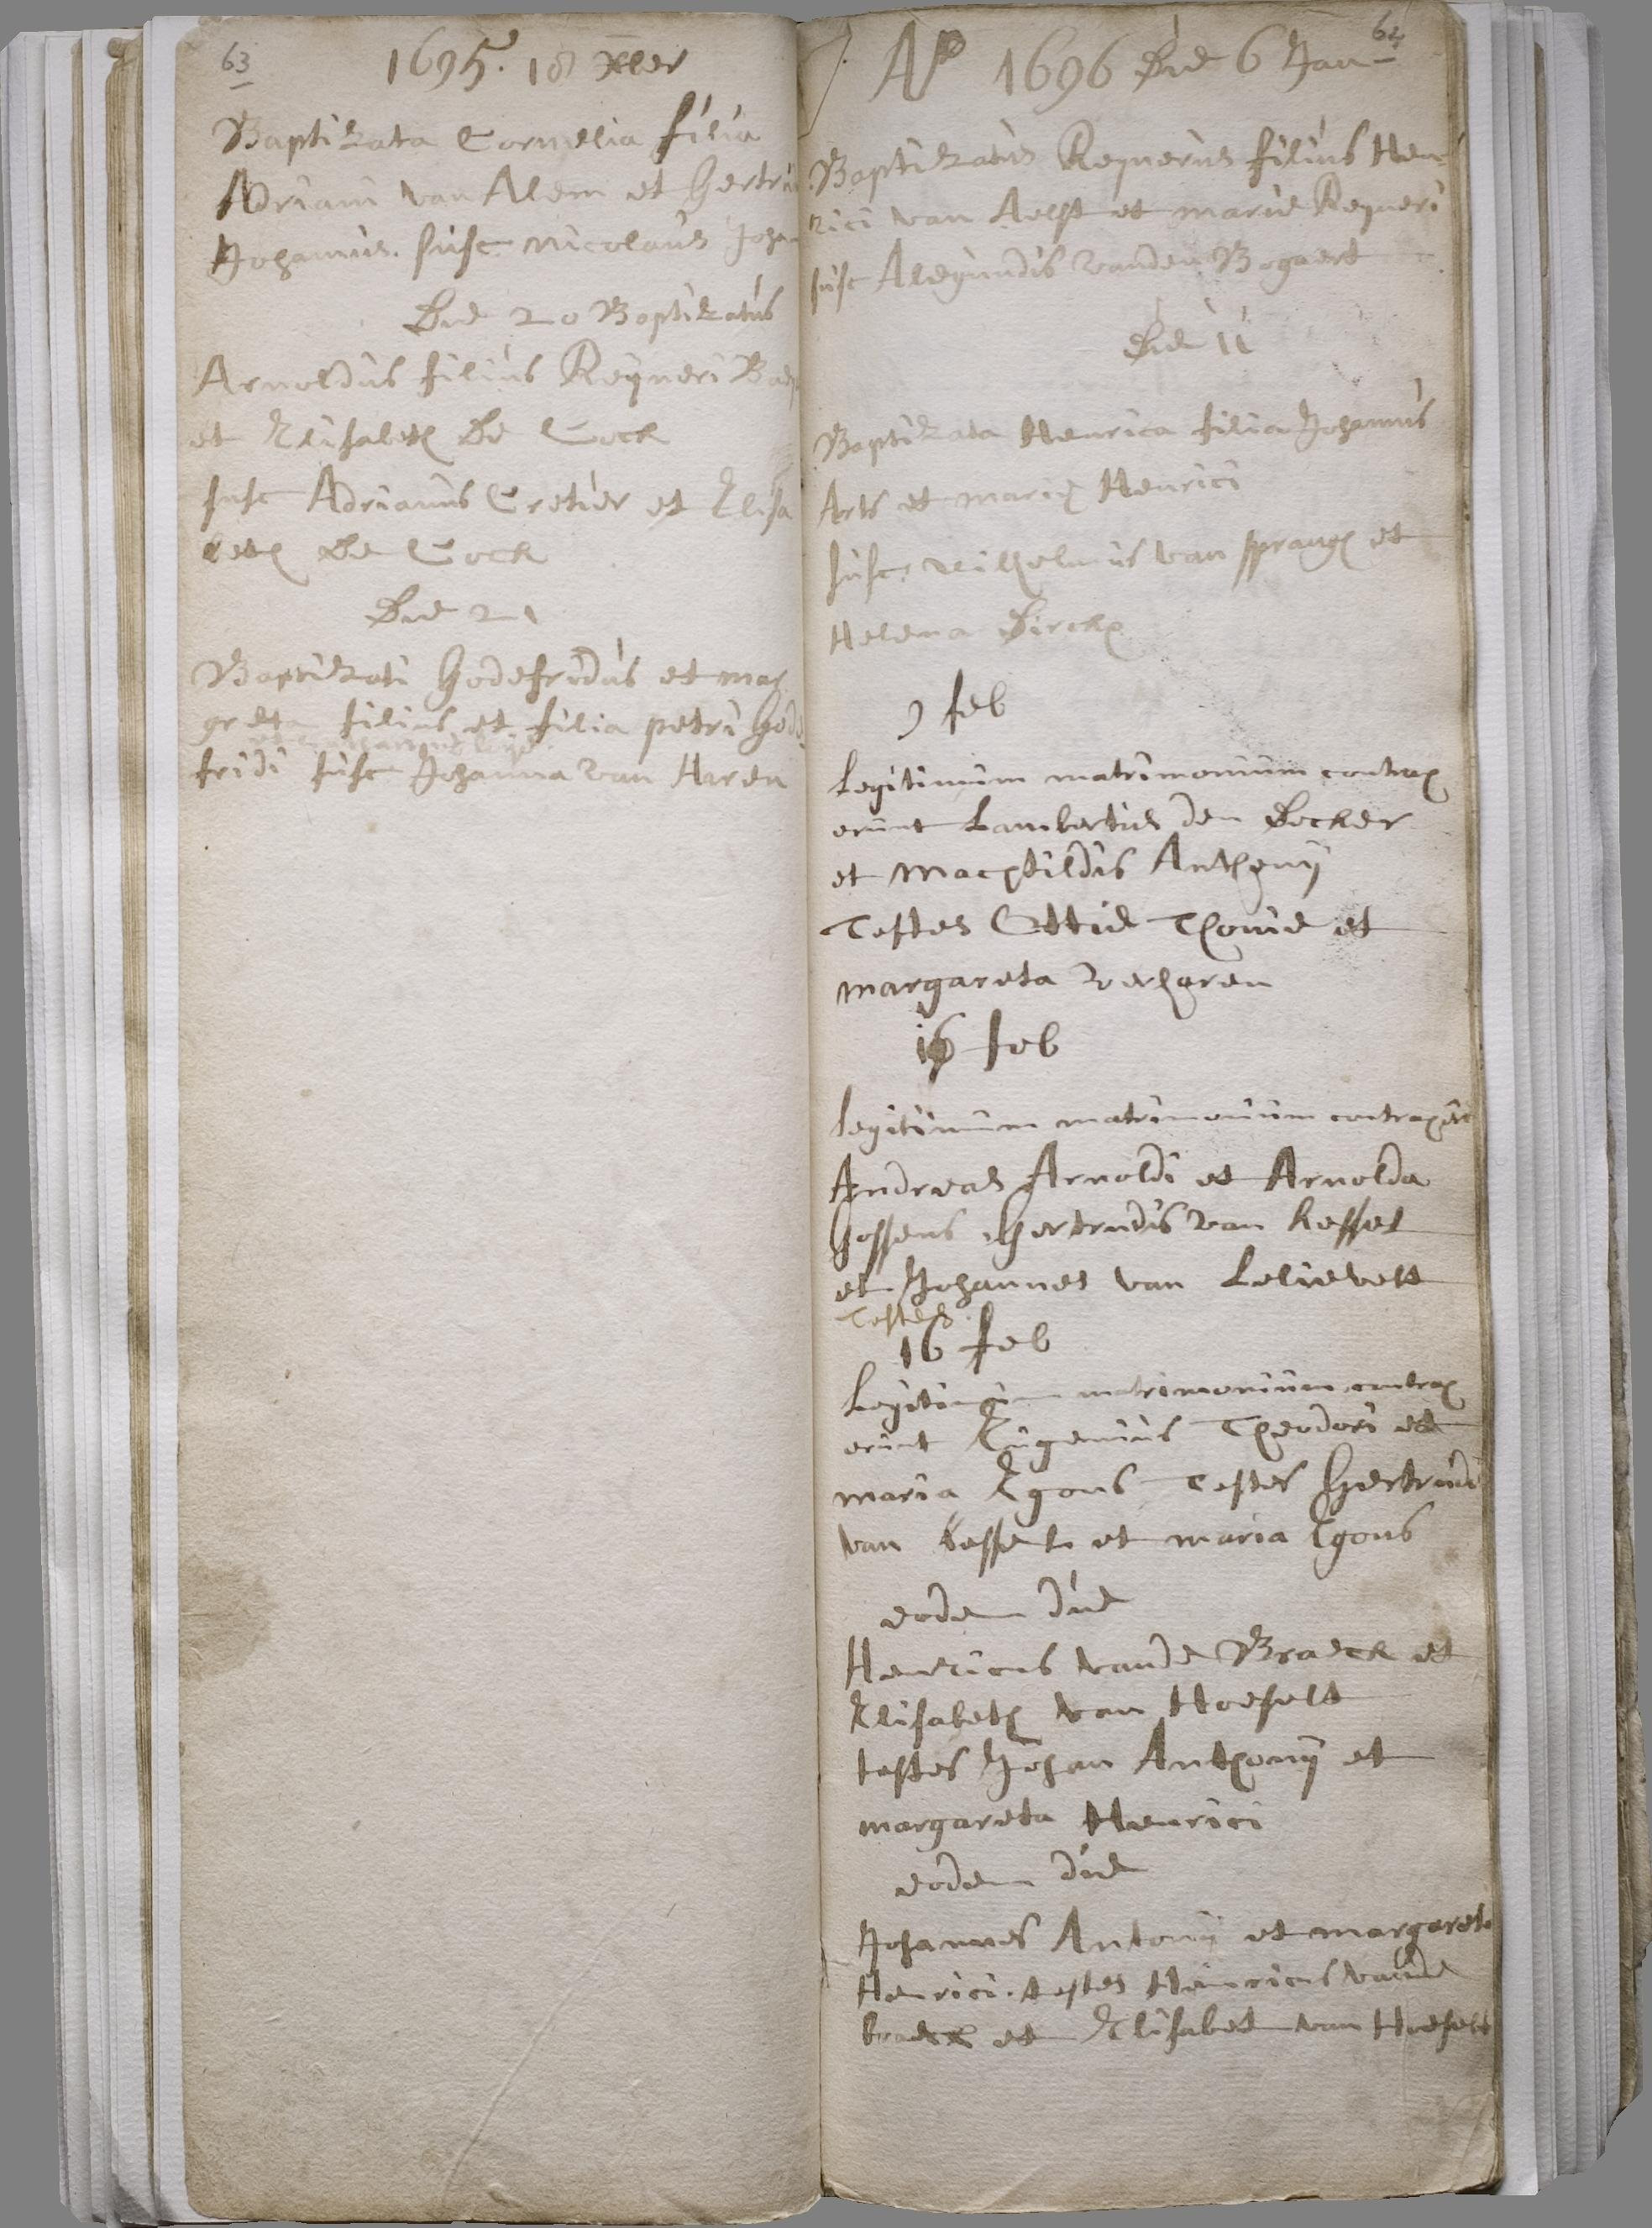 63
1695. 18 Xber
Baptizata Cornelia filia
Adriani van Alem et Gertru
Johannis. susc Nicolaus Joha
Die 20 Baptizatus
Arnoldus filius Reyneri
et Elisabeth De Cock
susc Adrianus Cretier et Elisa
beth De Cock
Die 21
Baptizati Godefridus et mar
greta filius et filia petri Gode
fridi susc Johanna van Haren
62
Ao 1696 Die 6 Jan
Baptizatus Reynerus filius Hen
rici van Aelst et marie Reyneri
susc Alegundis vanden Bogaert
Die 11
Baptizata Henrica filia Johannis
Arts et marie Henrici
susc: wilhelmus van sprangh et
Helena Dirckx
9 feb
Legitimum matrimonium contrax
erunt Lambertus den Decker
et Machtildis Anthonij
Testes Ottie Thonie et
margareta verhoren
16 feb
Legitimum matrimonium contraxere
Andreas Arnoldi et Arnolda
Gossens Gertrudis van kessel
et Johannes van Lelievelt
Testes
16 feb
Legitimum matrimonium contrax
erunt Eugenius Theodori et
maria Egons Testes Gertrudis
van kessel et maria Egons
eodem die
Henricus vande Braeck et
Elisabeth van Hoeselt
testes Johan Anthonij et
margareta Henrici
eodem die
Johannes Antonij et margareta
Henrici. testes Henricus vande
braeck et Elisabet van Hoeselt